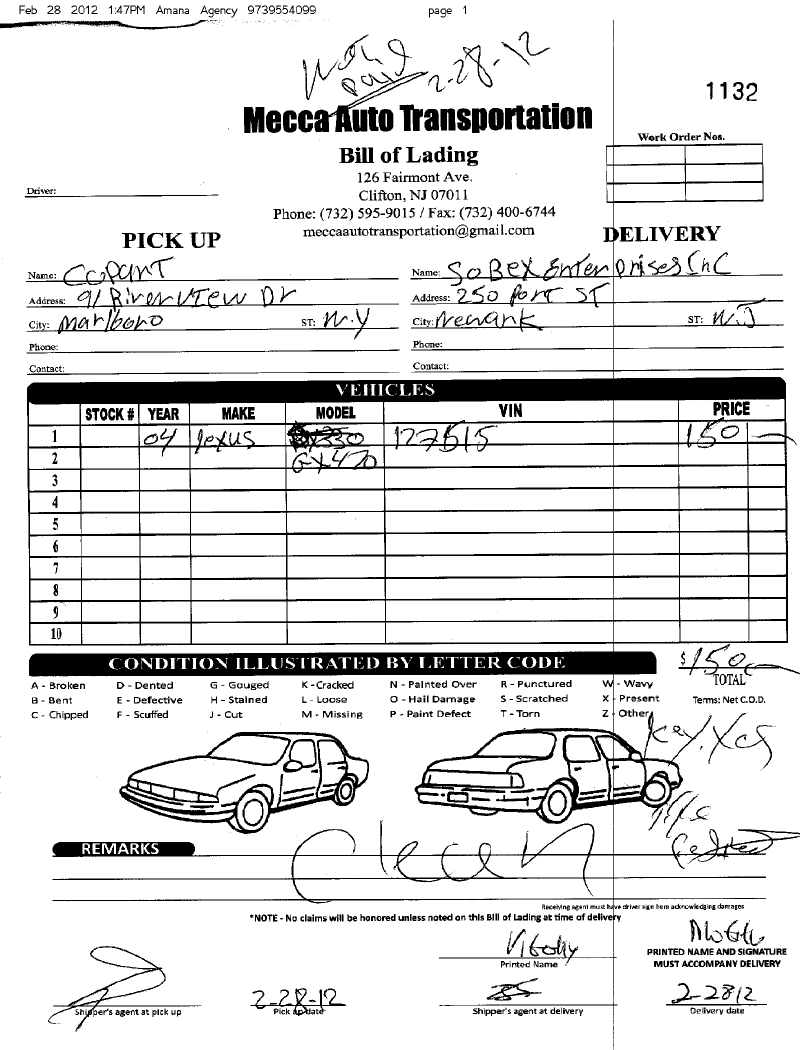 Feb 28 2012 1:47PM Amana Agency 9739554099 page 1
Not
paid 2-28-12
1132
Mecca Auto Transportation
Bill of Lading
126 Fairmont Ave.
Clifton, NJ 07011
Phone: (732) 595-9015 / Fax: (732) 400-6744
meccaautotransportation@gmail.com
Work Order Nos.
Driver:
PICK UP
Name: COPART
Address: 91 RiverVTew Dr
City: Marlboro ST: N.Y
Phone:
Contact:
DELIVERY
Name: SoBEX Enterprises Inc
Address: 250 PorT ST
City: Newark ST: N.J
Phone:
Contact:
VEHICLES
STOCK # YEAR MAKE MODEL VIN PRICE
1 04 lexus 127515 150
2 GX470
3
4
5
6
7
8
9
10
CONDITION ILLUSTRATED BY LETTER CODE
$150
TOTAL
Terms: Net C.O.D.
A - Broken D - Dented G - Gouged K - Cracked N - Painted Over R - Punctured W - Wavy
B - Bent E - Defective H - Stained L - Loose O - Hail Damage S - Scratched X - Present
C - Chipped F - Scuffed J - Cut M - Missing P - Paint Defect T - Torn Z - Other
key.Yes
REMARKS
Clean
Receiving agent must have driver sign here acknowledging damages
*NOTE - No claims will be honored unless noted on this Bill of Lading at time of delivery
Vitaliy
Printed Name
PRINTED NAME AND SIGNATURE
MUST ACCOMPANY DELIVERY
Shipper's agent at pick up
2-28-12
Pick up date
Shipper's agent at delivery
2-2812
Delivery date